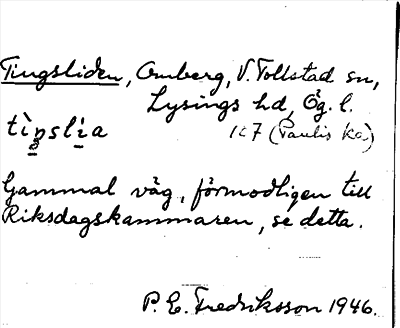 Tingsliden, Omberg, V. Tollstad sn,
Lysings hd, Ög. l.
tìŋslìa
(Paulis ka)
Gammal väg, förmodligen till
Riksdagskammaren, se detta.
P. E. Fredriksson 1946.